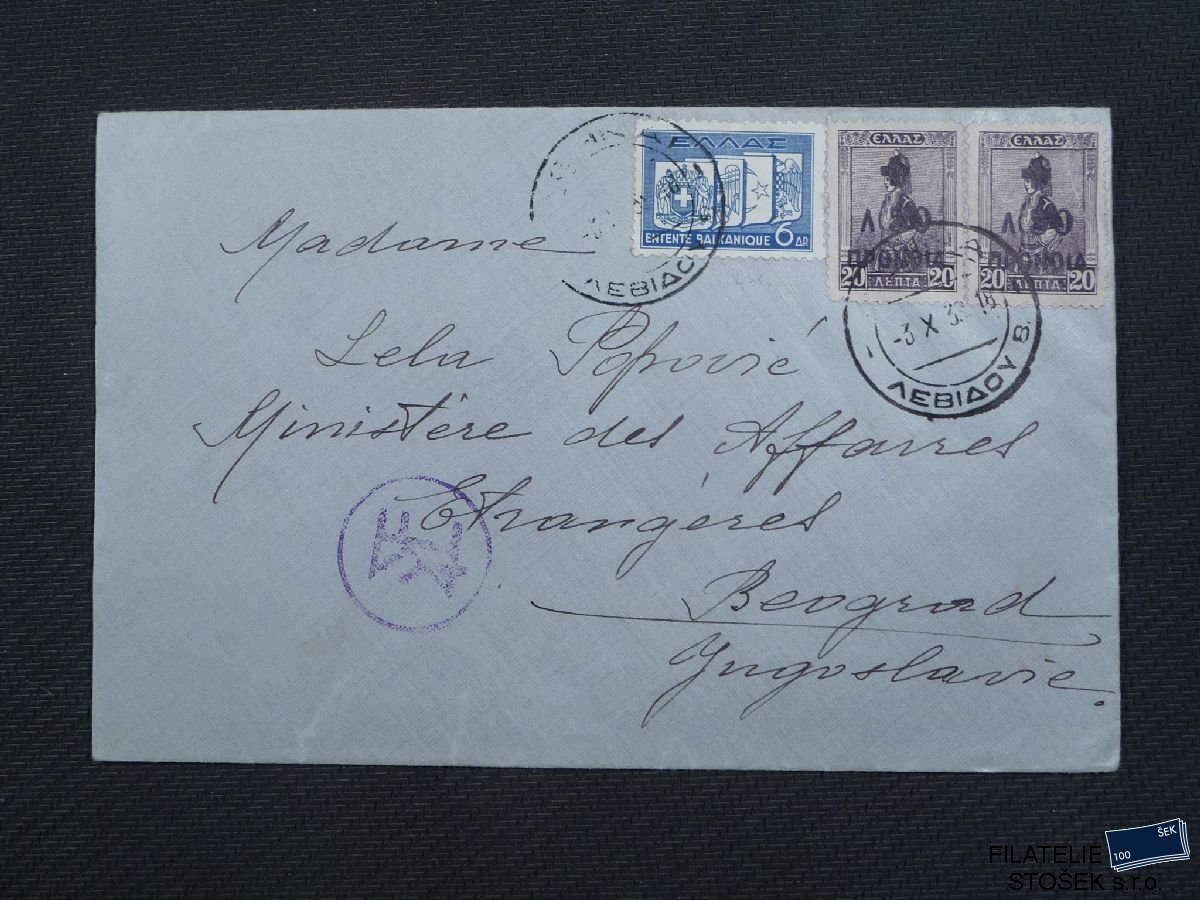 ΕΛΛΑΣ
ENTENTE BALKANIQUE 6 ΔΡ
ΕΛΛΑΣ
Λ 50
ΠΡΟΝΟΙΑ
20 ΛΕΠΤΑ 20
ΕΛΛΑΣ
Λ 50
ΠΡΟΝΟΙΑ
20 ΛΕΠΤΑ 20
ΛΕΒΙΔΟΥ
-3 X 39 18
ΛΕΒΙΔΟΥ Β
Madame
Lela Popović
Ministère des Affaires
Etrangères
Beograd
Yugoslavie.
ŠEK
100
FILATELIE
STOŠEK s.r.o.